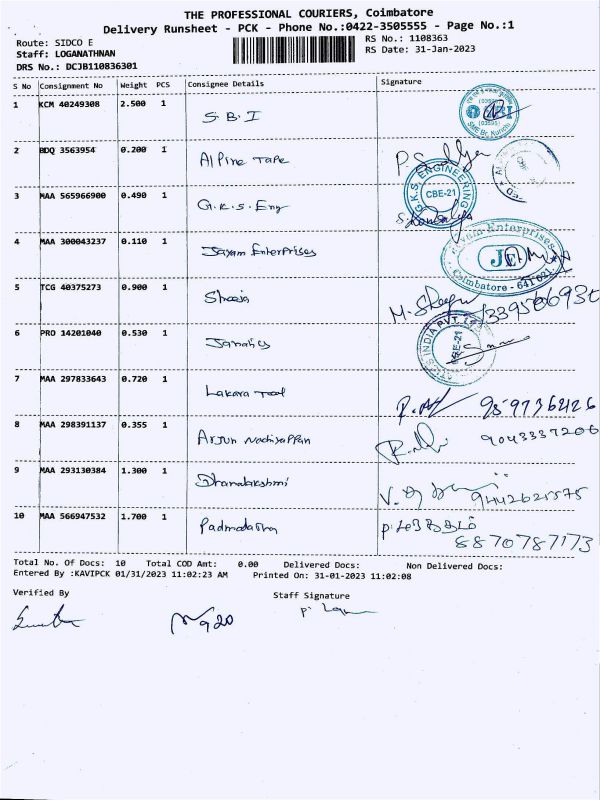 THE PROFESSIONAL COURIERS, Coimbatore
Delivery Runsheet - PCK - Phone No.:0422-3505555 - Page No.:1
Route: SIDCO E RS No.: 1108363
Staff: LOGANATHNAN RS Date: 31-Jan-2023
DRS No.: DCJB110836301
S No Consignment No Weight PCS Consignee Details Signature
1 KCM 40249308 2.500 1 S.B.I
2 BDQ 3563954 0.200 1 Alpine Tape
3 MAA 565966900 0.490 1 G.K.S. Eng
G.K.S. ENGINEERING
CBE-21
4 MAA 300043237 0.110 1 Jayam Enterprises
Jayam Enterprises
JE
Coimbatore - 641 021.
5 TCG 40375273 0.900 1
6 PRO 14201040 0.530 1
INDIA PVT.
CBE-21
7 MAA 297833643 0.720 1 Lakara Tool 9597362426
8 MAA 298391137 0.355 1 Arjun Nachiyappan 9043337206
9 MAA 293130384 1.300 1 Dhanalakshmi 9442621575
10 MAA 566947532 1.700 1 8870787173
Total No. Of Docs: 10 Total COD Amt: 0.00 Delivered Docs: Non Delivered Docs:
Entered By :KAVIPCK 01/31/2023 11:02:23 AM Printed On: 31-01-2023 11:02:08
Verified By Staff Signature